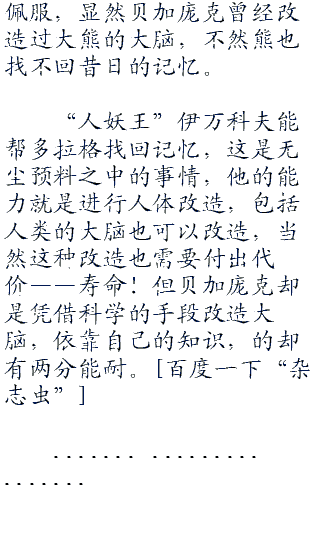 佩服，显然贝加庞克曾经改
造过大熊的大脑，不然熊也
找不回昔日的记忆。
“人妖王”伊万科夫能
帮多拉格找回记忆，这是无
尘预料之中的事情，他的能
力就是进行人体改造，包括
人类的大脑也可以改造，当
然这种改造也需要付出代
价——寿命！但贝加庞克却
是凭借科学的手段改造大
脑，依靠自己的知识，的却
有两分能耐。[百度一下“杂
志虫”]
....... .........
.......